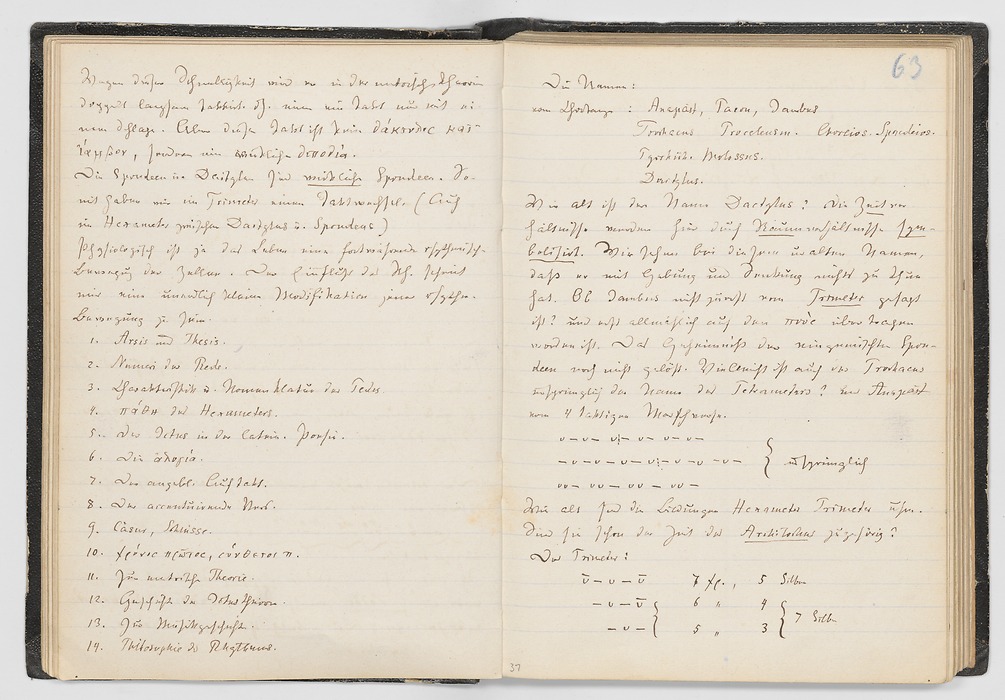 Wegen dieser Schnelligkeit wird er in der metrischen Theorie
doppelt langsam taktirt. dh. einen Takt nur mit ei-
nem Schlage. Aber dieser Takt ist kein δάκτυλος κατ'
ἴαμβον, sondern eine wirkliche διποδία.
Die Spondeen u. Dactylen sind wirkliche Spondeen. So-
mit haben wir im Trimeter einen Taktwechsel. (Auch
im Hexameter zwischen Dactylus u. Spondeus)
Physiologisch ist ja das Leben eine fortwährende rhythmische
Bewegung der Zellen. Der Einfluß des Rh. scheint
mir eine unendlich kleine Modifikation jener rhythm.
Bewegung zu sein.
1. Arsis und Thesis.
2. Numeri der Rede.
3. Charakteristik u. Nomenklatur der Pedes.
4. πάθη des Hexameters.
5. Der Ictus in der latein. Poesie.
6. Die ἀλογία.
7. Der angebl. Auftakt.
8. Der accentuirende Vers.
9. Cäsur, Schlüsse.
10. χρόνος πρῶτος, σύνθετος π.
11. Zur metrischen Theorie.
12. Geschichte der Ictustheorie.
13. Zur Musikgeschichte.
14. Philosophie des Rhythmus.
63
Die Namen:
vom : Anapäst, Paeon, Iambus
Trochaeus Proceleusm. Choreios. Spondeios.
Pyrrhich. Molossus.
Dactylus.
Wie alt ist der Name Dactylus? Die Zeitver
hältnisse werden hier durch Raumverhältnisse sym-
bolisirt. Wir sehen bei diesem uralten Namen,
daß er mit Hebung und Senkung nichts zu thun
hat. Ob Iambus nicht zuerst vom Trimeter gesagt
ist? und erst allmählich auf den πούς übertragen
worden ist. Das Geheimniß der eingemischten Spon-
deen noch nicht gelöst. Vielleicht ist auch der Trochaeus
ursprünglich der Name des Tetrameters? der Anapäst
vom 4 taktigen Marschverse.
∪–∪– ∪–∪– ∪–∪–
–∪–∪ –∪–∪ –∪–∪ –∪– } ursprünglich
∪∪– ∪∪– ∪∪– ∪∪–
Wie alt sind die Bildungen Hexameter Trimeter usw.
Sind sie schon der Zeit des Archilochus zugehörig?
Der Trimeter:
∪–∪–∪ 7 χρ., 5 Silben
–∪–∪ 6 " 4
–∪– 5 " 3 } 7 Silb
37